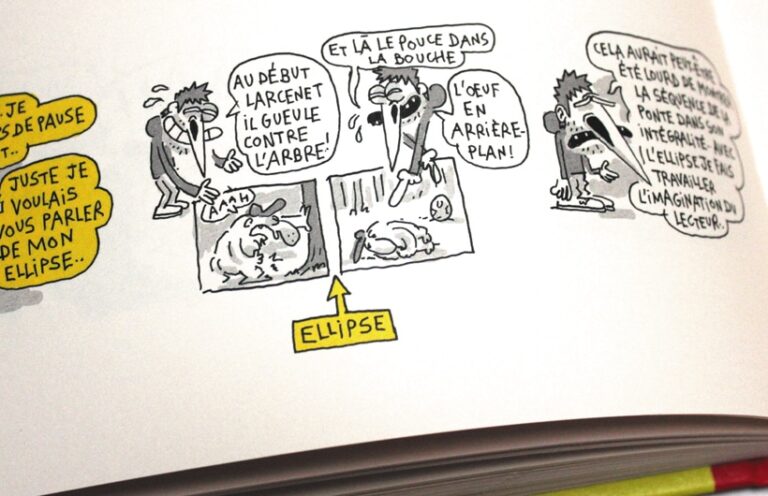 JE
DE PAUSE
JUSTE JE
VOULAIS
VOUS PARLER
DE MON
ELLIPSE..
AU DÉBUT
LARCENET
IL GUEULE
CONTRE
L'ARBRE!
ET LÀ LE POUCE DANS
LA BOUCHE
L'OEUF
EN
ARRIÈRE-
PLAN!
AAAH
ELLIPSE
CELA AURAIT PEUT-ÊTRE
ÉTÉ LOURD DE
LA SÉQUENCE DE LA
PONTE DANS SON
INTÉGRALITÉ. AVEC
L'ELLIPSE JE FAIS
TRAVAILLER
L'IMAGINATION DU
LECTEUR..